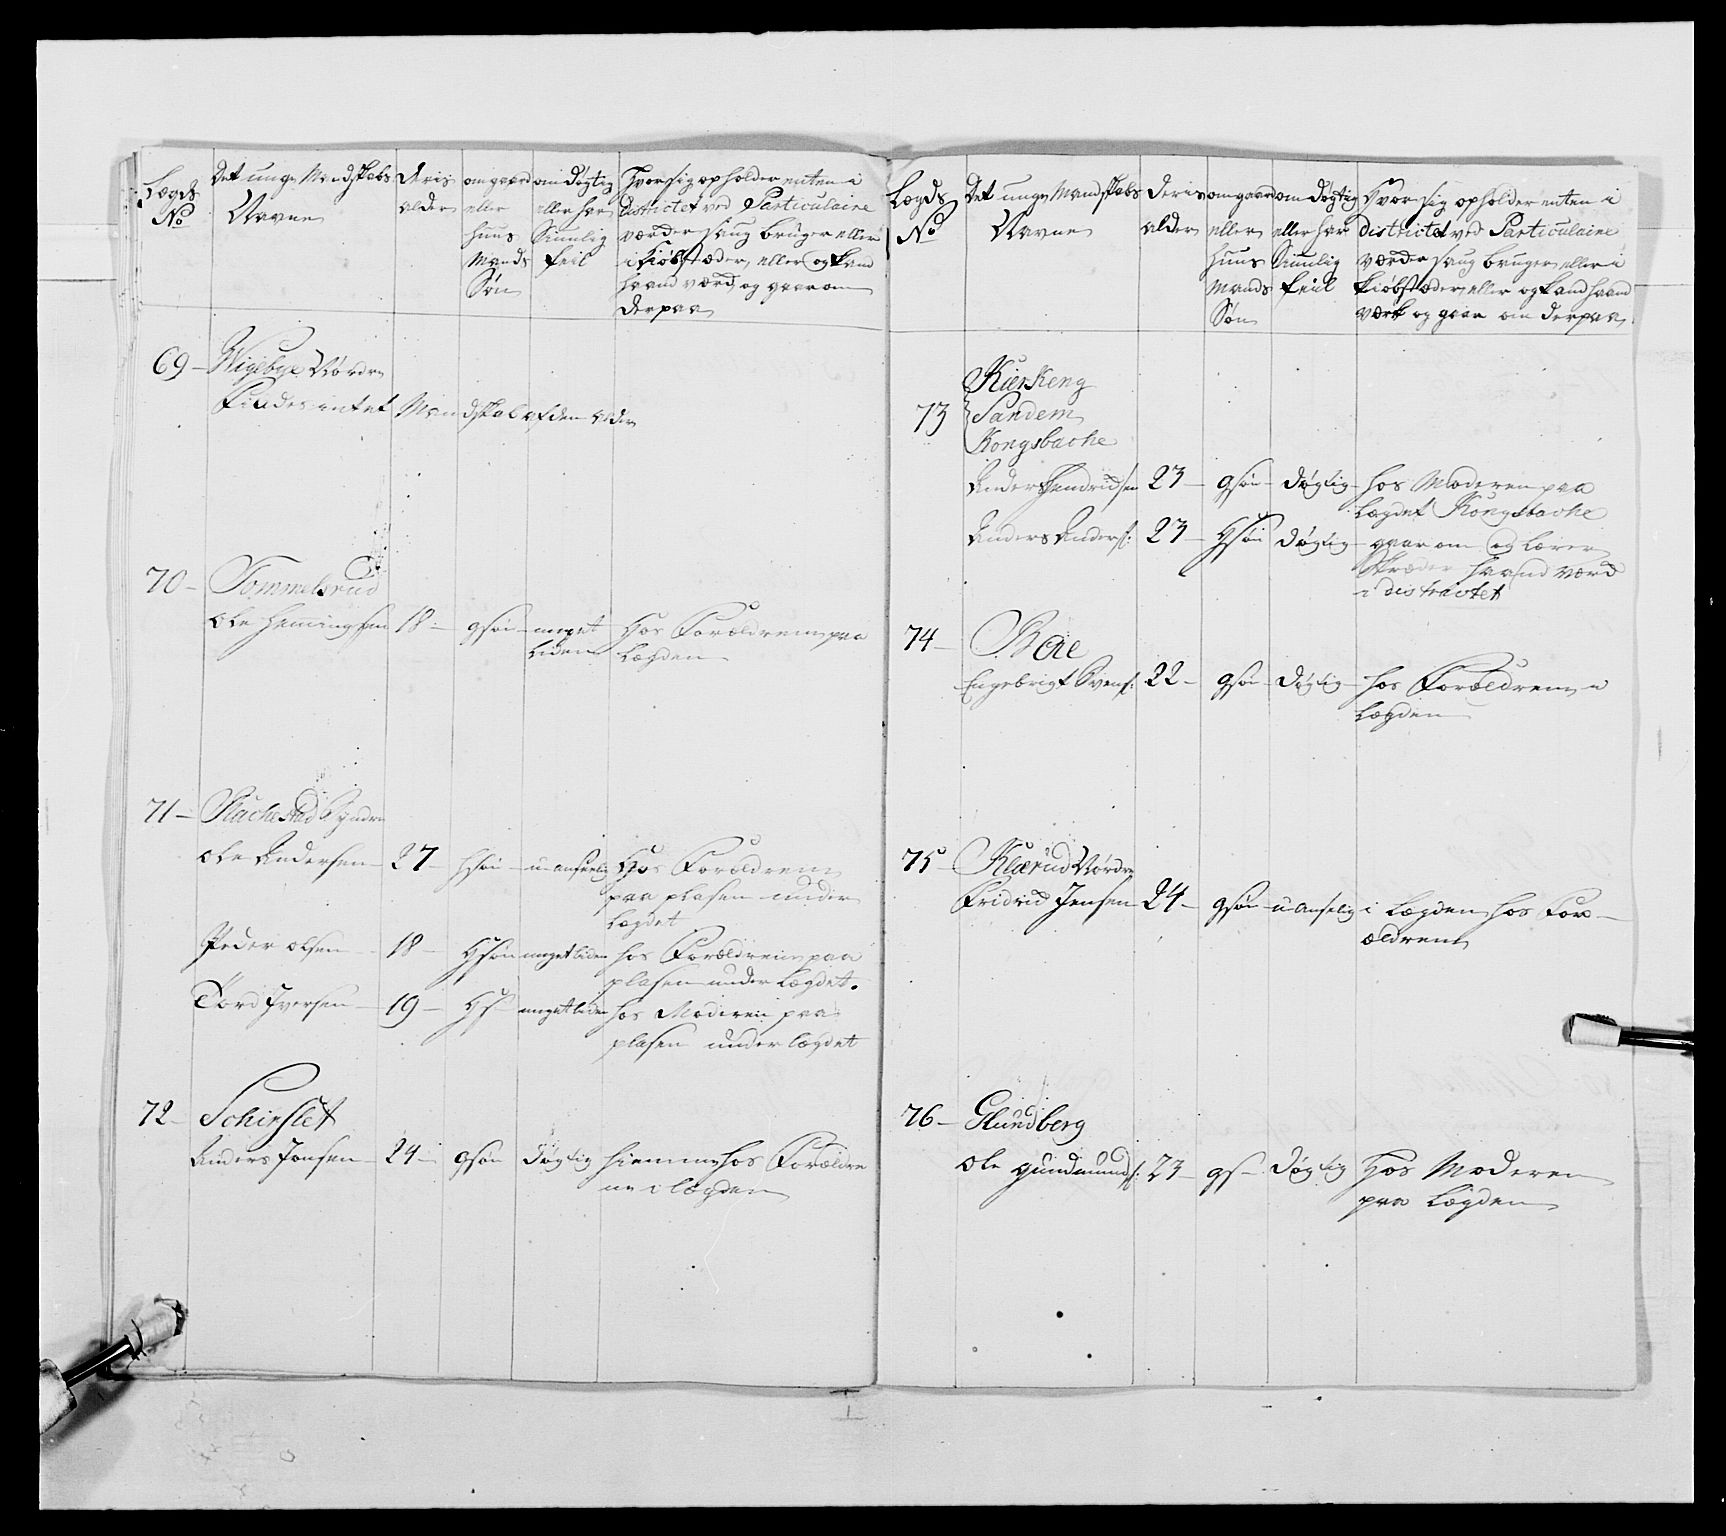 Lægds
No
Det unge Mandskabs
Navne
Deris
alder
om gaard
eller
huus
Mands
Søn
om døgtig
eller har
Siunlig
feil
Hvor sig opholder enten i
Districtet ved Particulaire
værder saug bruger eller
i Kiøbstæder, eller og kand
haand værd og gaar om
derpaa
69 - Wigebye Nordre
Findes intet Mandskab af den alder
70 - Tommelsrud
Ole Hemingsen 18 - gsøn - meget Hos Forældrene paa
liden Lægden
71 - Stachestad Syndre
Ole Andersen - 27 - hsøn - u-anseelig Hos Forældrene
paa plasen under
Lægdet
Peder Olsen - 18 - Hsøn meget liden hos Forældrene paa
plasen under Lægdet.
Tord Iversen - 19 - HS - meget liden hos Moderen paa
plasen under lægdet
72 - Schirslet
Anders Jonsen - 24 - gsøn døgtig hiemme hos Forældre
ne i lægden
Lægds
No
Det unge Mandskabs
Navne
Deris
alder
om gaard
eller
huus
Mands
Søn
om døgtig
eller har
Siunlig
feiil
Hvor sig opholder enten i
districtet ved Particulaire
værder saug bruger eller i
kiøbstæder, eller og kand haand
værk og gaar om derpaa,
Kierkeng
73 Sandem
Kongsbache
Anders Hendrichsen 23 - gsøn - døgtig - hos Moderen paa
Lægdet Kongsbache
Anders Anders: 23 - Hsøn døgtig - gaar om og lærer
Skræder haand værd
i districtet
74 - Moe
Engebrigt Svens: 22 - gsøn - døgtig - hos Forældrene i
Lægden
75 - Klærud Nørdre
Fridrich Jensen 24 - gsøn - u-anselig i Lægden hos For-
ældrene
76 - Glundberg
Ole gundmunds: 23 - gs - døgtig Hos Moderen
paa Lægden